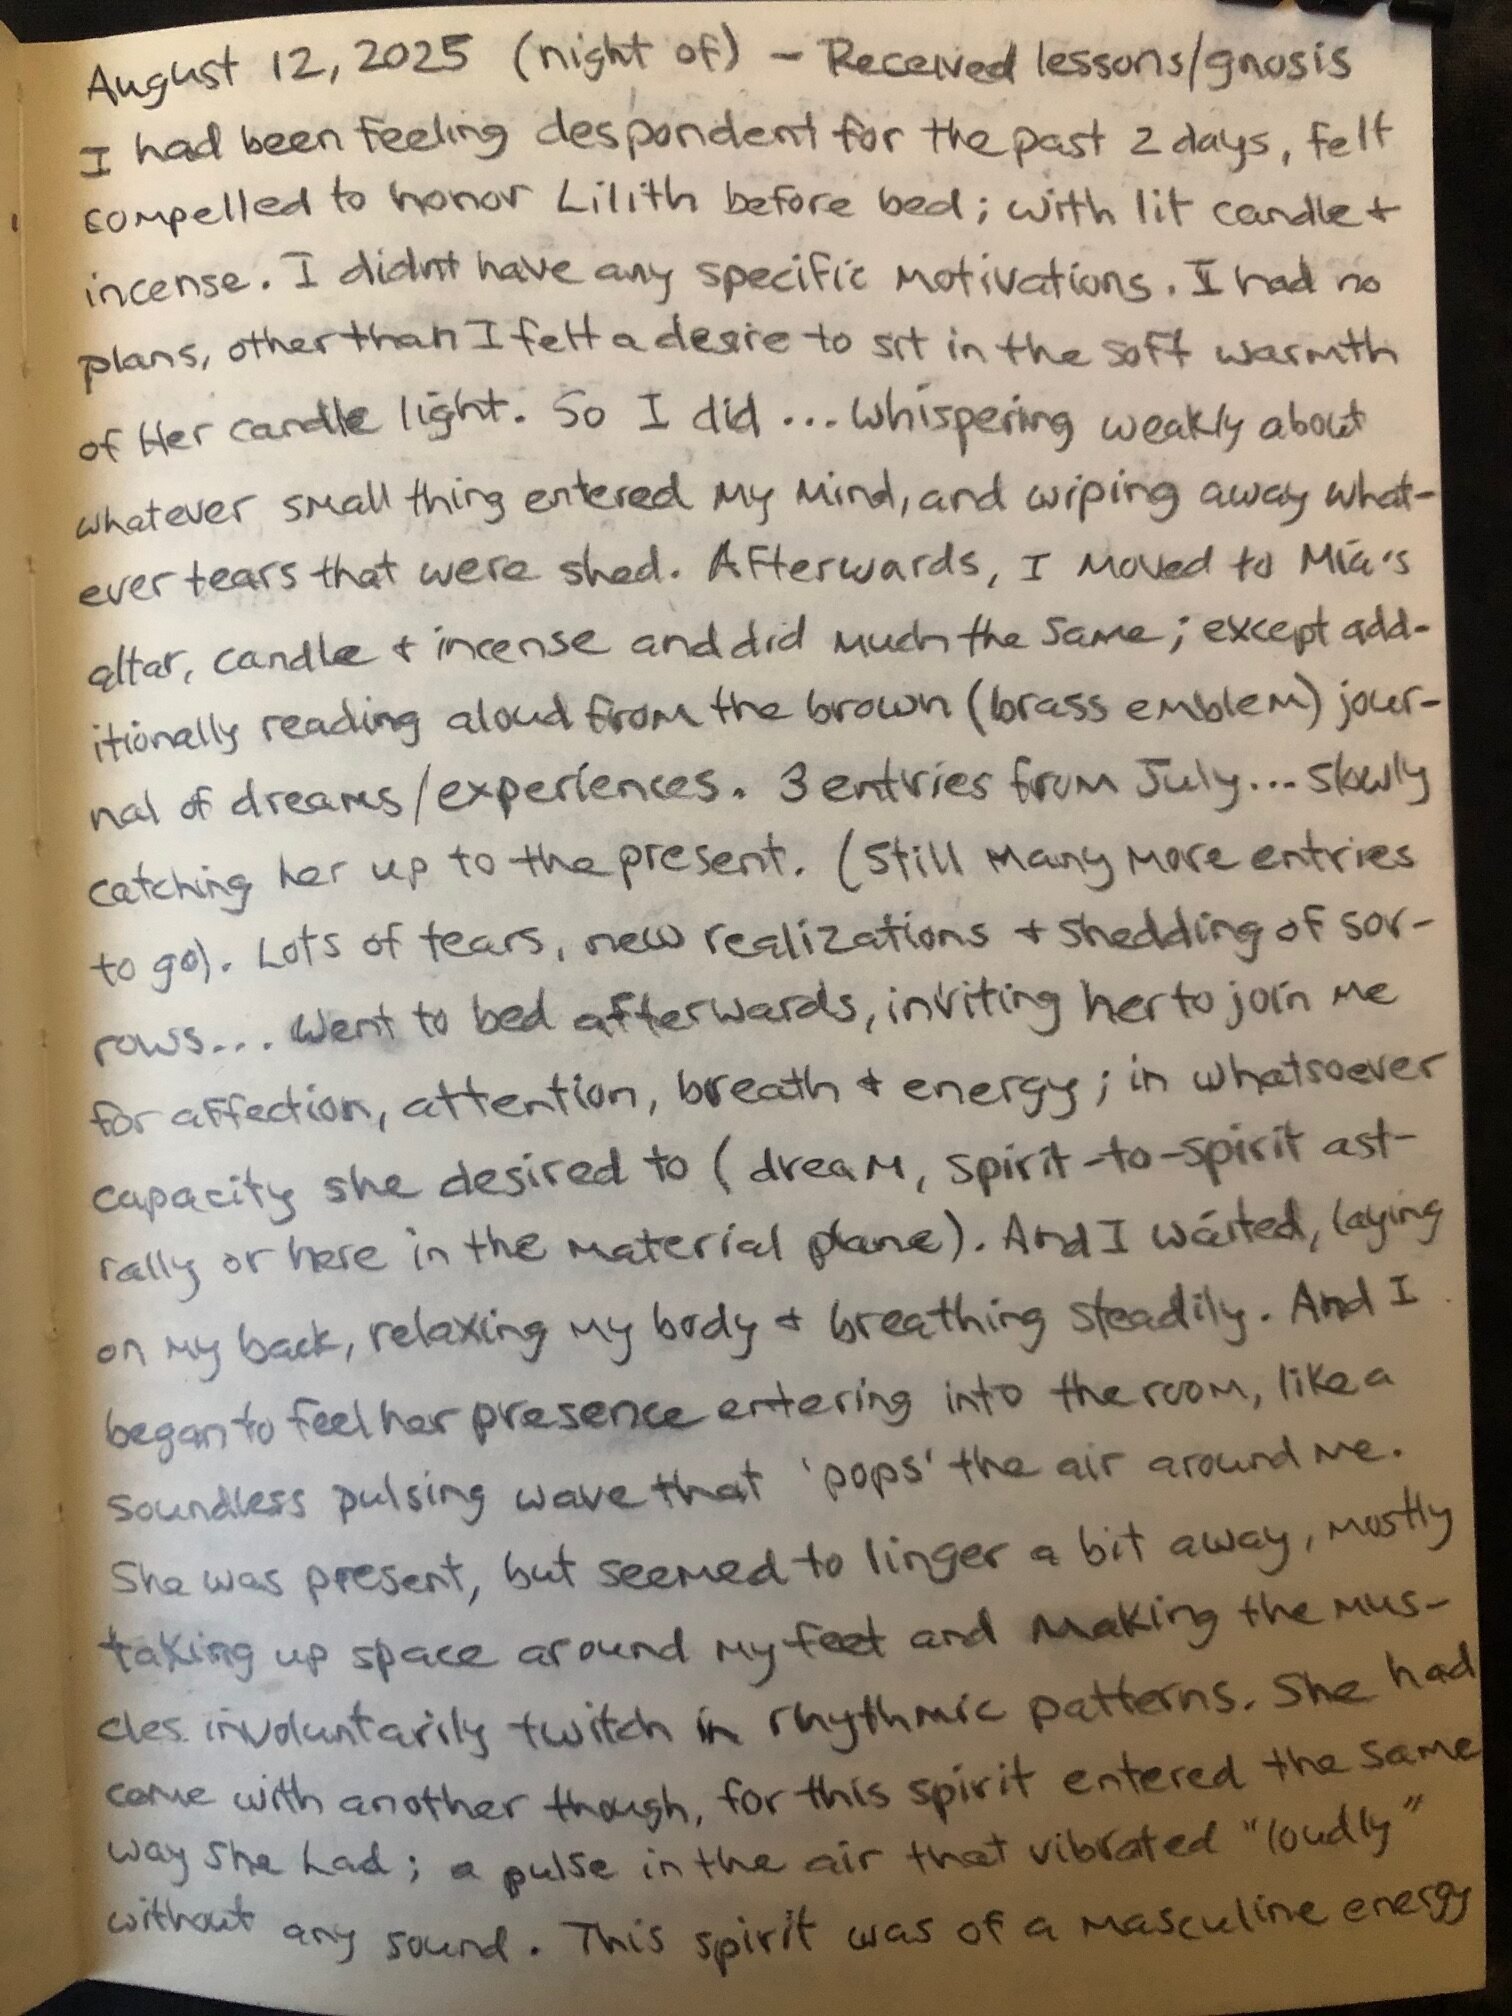 August 12, 2025 (night of) - Received lessons/gnosis
I had been feeling despondent for the past 2 days, felt
compelled to honor Lilith before bed; with lit candle +
incense. I didnt have any specific motivations. I had no
plans, other than I felt a desire to sit in the soft warmth
of Her candle light. So I did ... whispering weakly about
whatever small thing entered my mind, and wiping away what-
ever tears that were shed. Afterwards, I moved to Mia's
altar, candle + incense and did much the same; except add-
itionally reading aloud from the brown (brass emblem) jour-
nal of dreams/experiences. 3 entries from July... slowly
catching her up to the present. (Still many more entries
to go). Lots of tears, new realizations + shedding of sor-
rows... Went to bed afterwards, inviting her to join me
for affection, attention, breath + energy; in whatsoever
capacity she desired to (dream, spirit-to-spirit ast-
rally or here in the material plane). And I waited, laying
on my back, relaxing my body + breathing steadily. And I
began to feel her presence entering into the room, like a
soundless pulsing wave that 'pops' the air around me.
She was present, but seemed to linger a bit away, mostly
taking up space around my feet and making the mus-
cles involuntarily twitch in rhythmic patterns. She had
come with another though, for this spirit entered the same
way she had; a pulse in the air that vibrated "loudly"
without any sound. This spirit was of a masculine energy